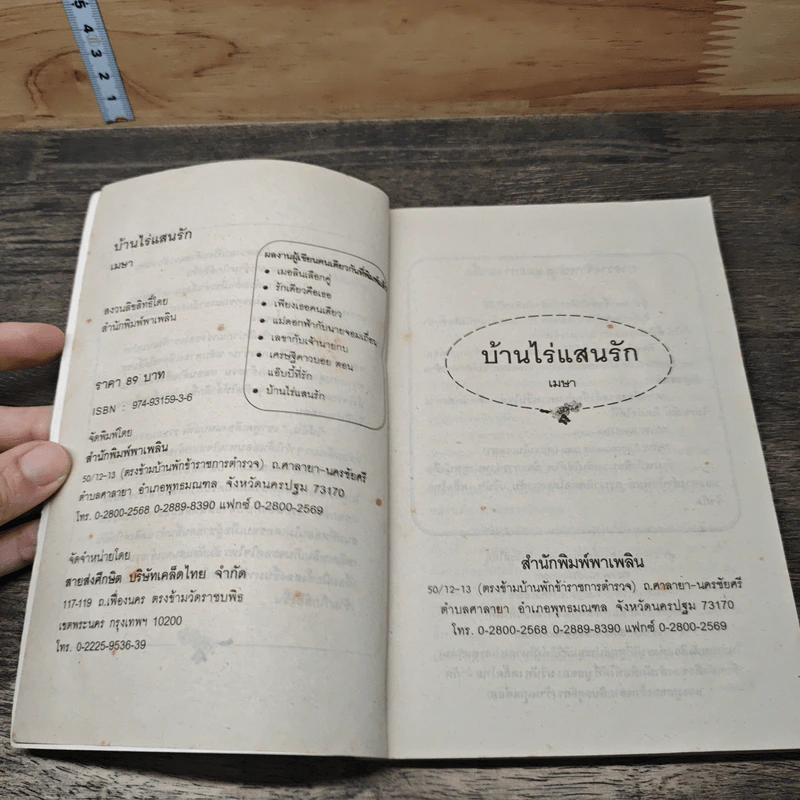 5 4 3 2 1
บ้านไร่แสนรัก
เมษา
สงวนลิขสิทธิ์โดย
สำนักพิมพ์พาเพลิน
ราคา 89 บาท
ISBN : 974-93159-3-6
ผลงานผู้เขียนคนเดียวกันที่พิมพ์แล้ว
• เมอลินเลือกคู่
• รักเดียวคือเธอ
• เพียงเธอคนเดียว
• แม่ดอกฟ้ากับนายจอมเถื่อน
• เลขากับเจ้านายกบ
• เศรษฐีคาวบอย ตอน
แอ๊บบี้ที่รัก
• บ้านไร่แสนรัก
จัดพิมพ์โดย
สำนักพิมพ์พาเพลิน
50/12-13 (ตรงข้ามบ้านพักข้าราชการตำรวจ) ถ.ศาลายา-นครชัยศรี
ตำบลศาลายา อำเภอพุทธมณฑล จังหวัดนครปฐม 73170
โทร. 0-2800-2568 0-2889-8390 แฟกซ์ 0-2800-2569
จัดจำหน่ายโดย
สายส่งศึกษิต บริษัทเคล็ดไทย จำกัด
117-119 ถ.เฟื่องนคร ตรงข้ามวัดราชบพิธ
เขตพระนคร กรุงเทพฯ 10200
โทร. 0-2225-9536-39
บ้านไร่แสนรัก
เมษา
สำนักพิมพ์พาเพลิน
50/12-13 (ตรงข้ามบ้านพักข้าราชการตำรวจ) ถ.ศาลายา-นครชัยศรี
ตำบลศาลายา อำเภอพุทธมณฑล จังหวัดนครปฐม 73170
โทร. 0-2800-2568 0-2889-8390 แฟกซ์ 0-2800-2569